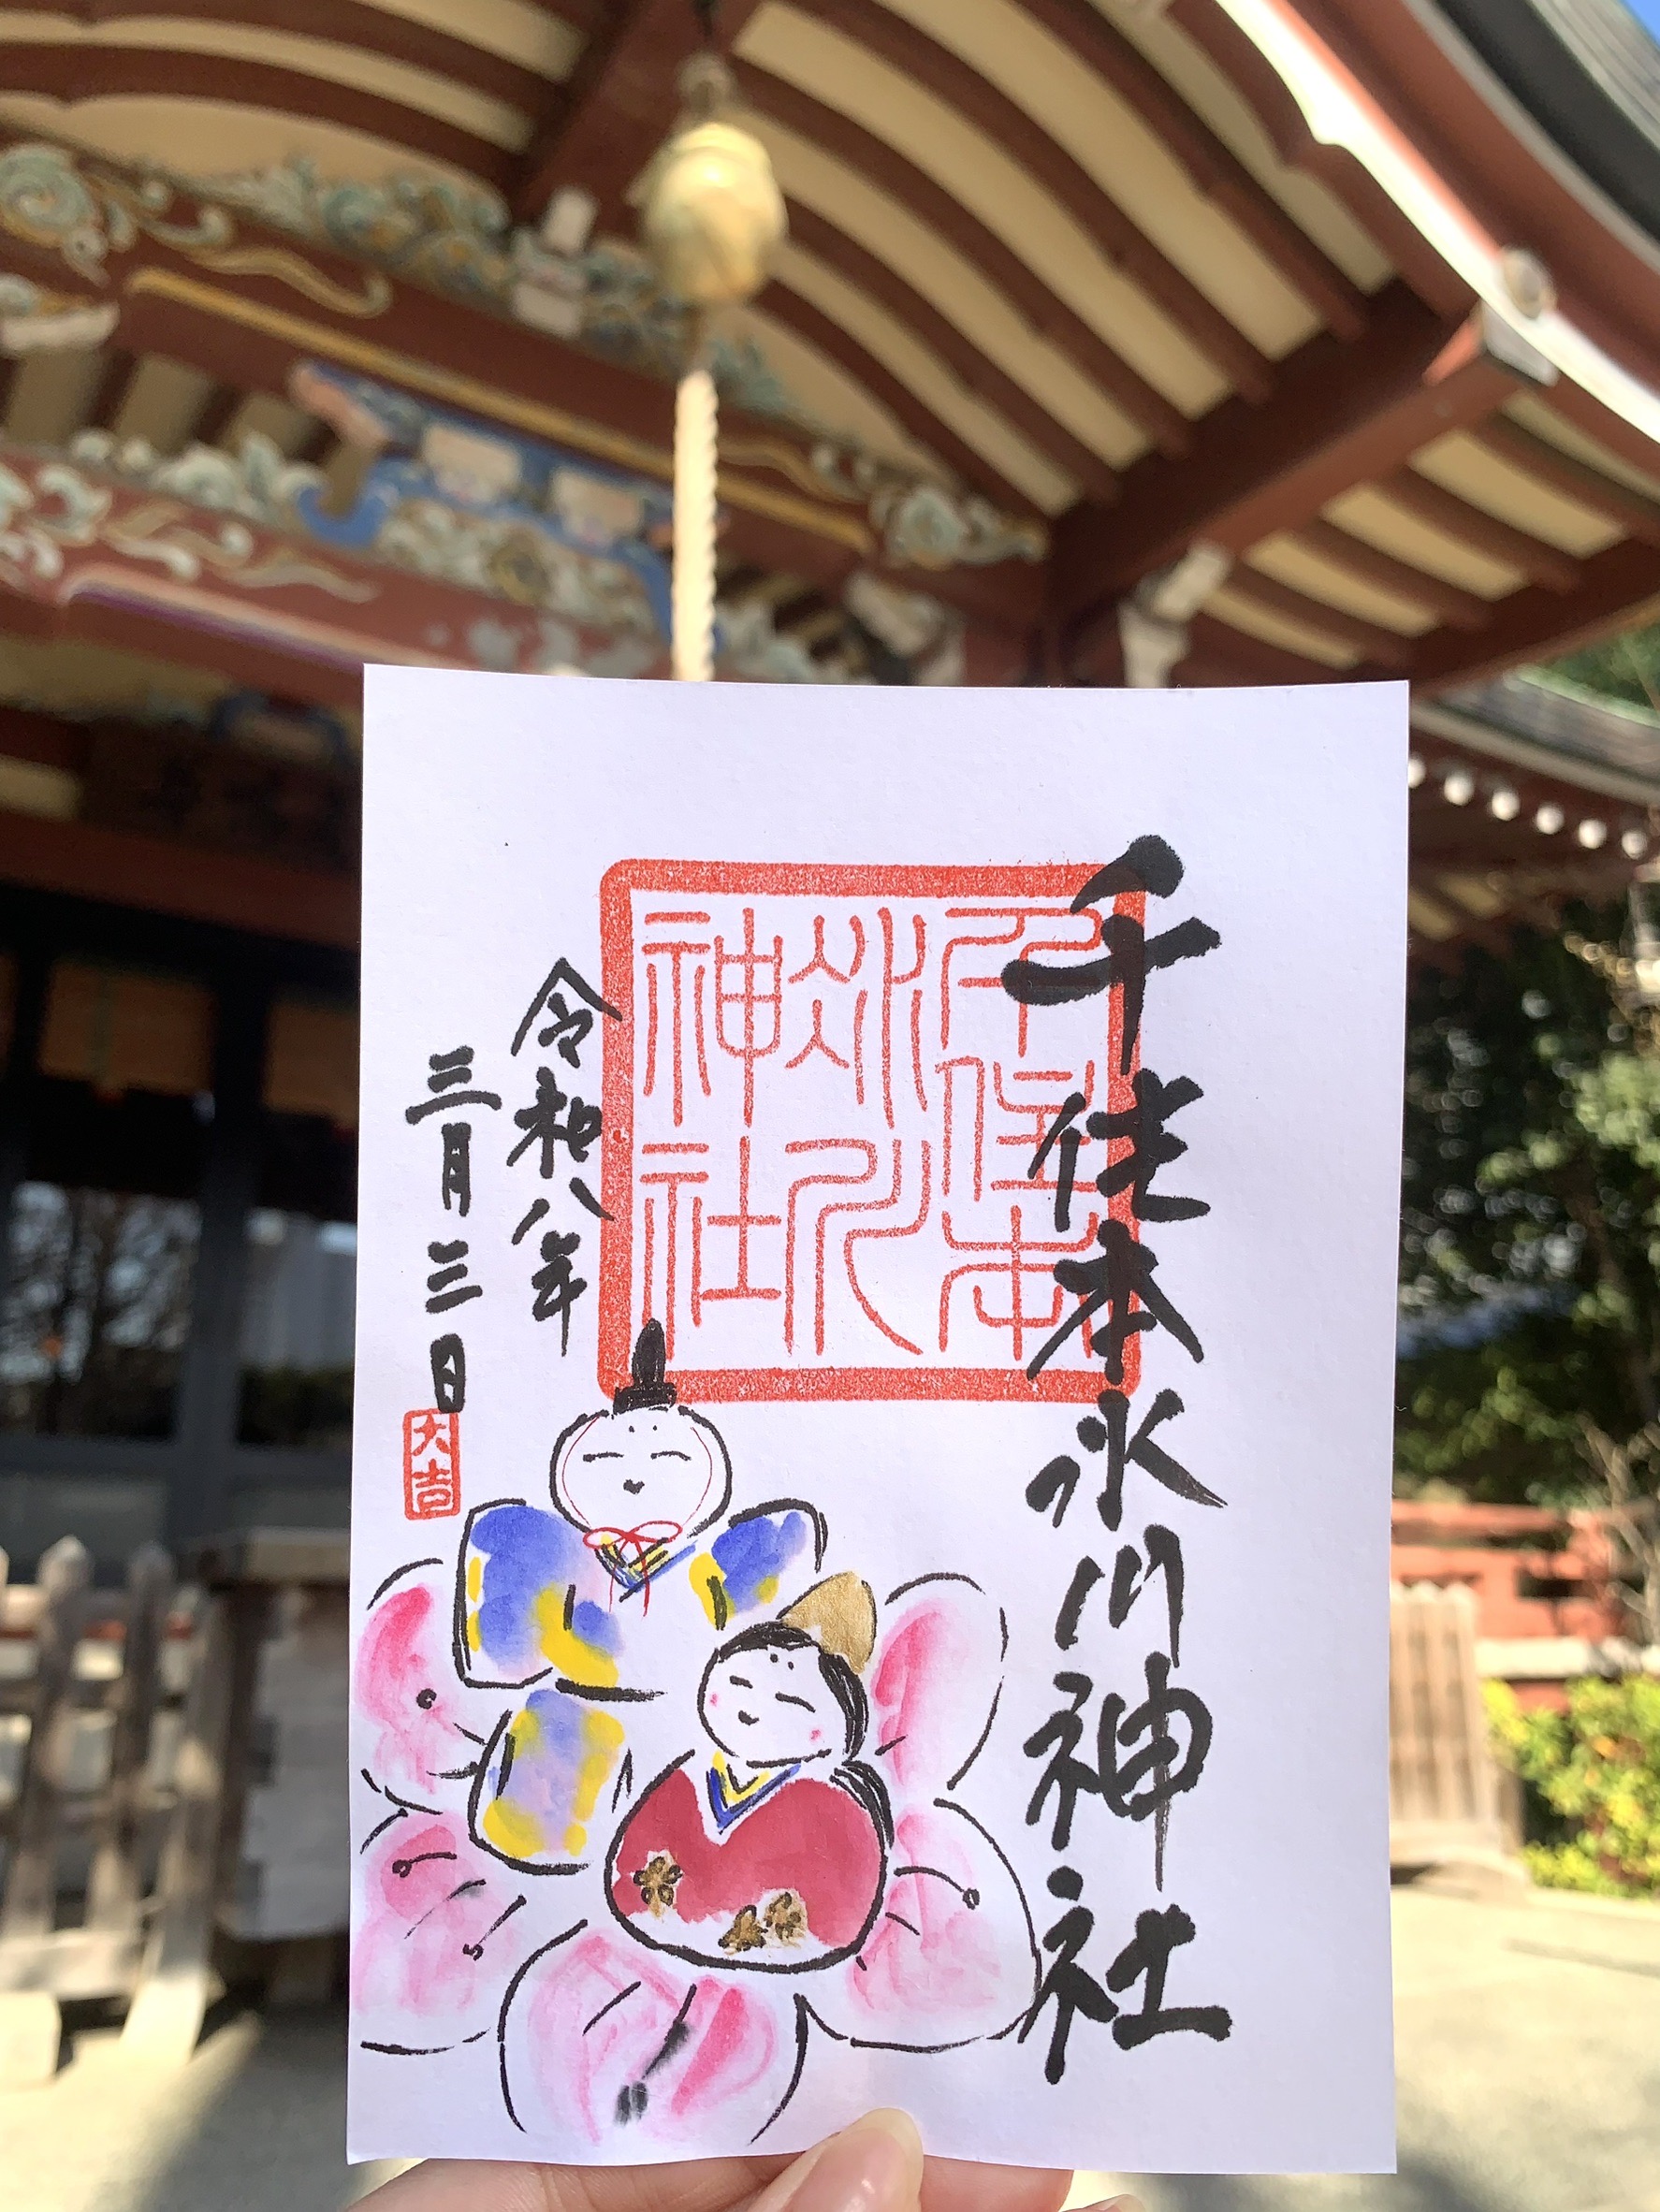 千住本氷川神社
千住本
氷川
神社
令和八年
三月三日
大吉